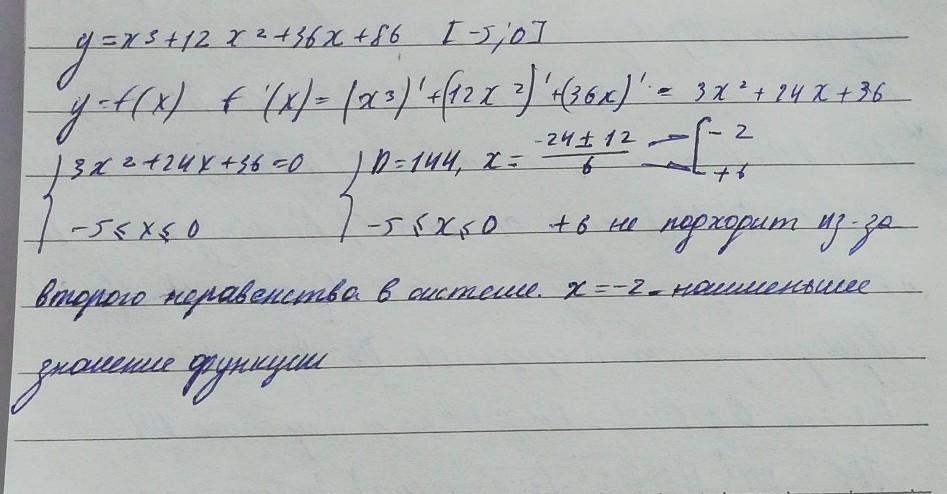 y=x³+12x²+36x+86 [-5;0]
y=f(x) f'(x)=(x³)'+(12x²)'+(36x)'= 3x²+24x+36
{3x²+24x+36=0 {D=144, x= (-24±12)/6 [-2 +6
-5≤x≤0 -5≤x≤0 +6 не подходит из-за
второго неравенства в системе. x=-2 - наименьшее
значение функции